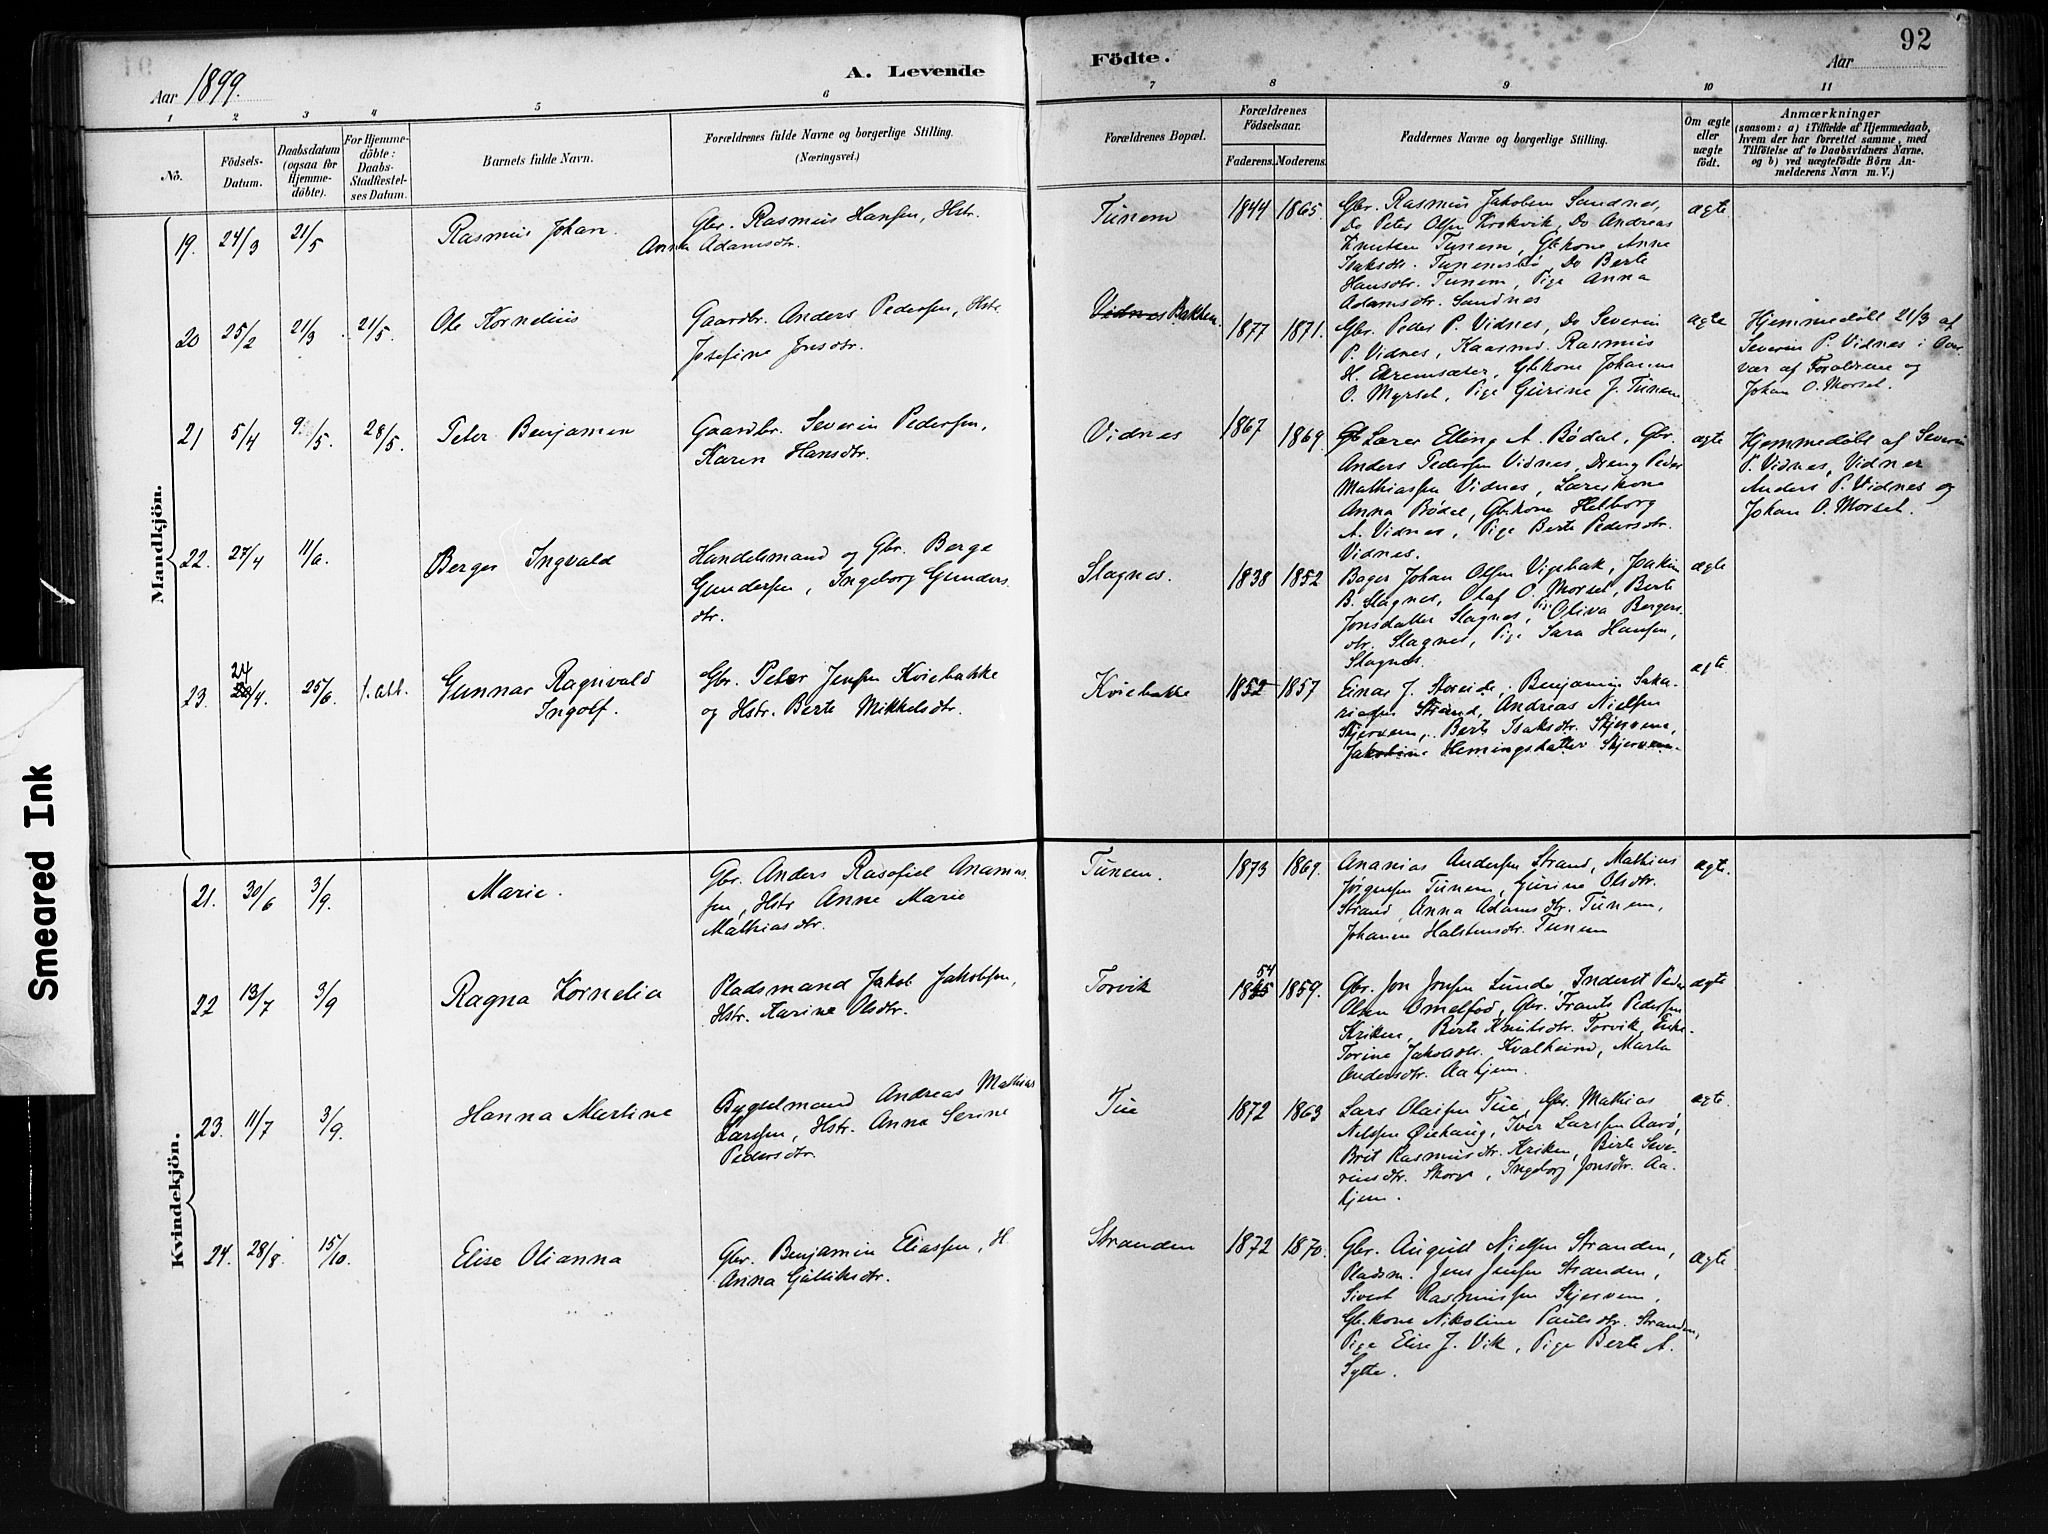 Aar 1899.
A. Levende
Födte.
Aar
92
1
2
3
4
5
6
7
8
9
10
11
No.
Födsels-
Datum.
Daabsdatum
(ogsaa for
Hjemme-
döbte).
For Hjemme-
döbte:
Daabs-
Stadfæstel-
ses Datum.
Barnets fulde Navn.
Forældrenes fulde Navne og borgerlige Stilling.
(Næringsvei.)
Forældrenes Bopæl.
Forældrenes
Födselsaar.
Faderens.
Moderens.
Faddernes Navne og borgerlige Stilling.
Om ægte
eller
uægte
født.
Anmærkninger
(saasom: a) i Tilfælde af Hjemmedaab,
hvem der har forrettet samme, med
Tilföielse af to Daabsvidners Navne,
og b) ved uægtefödte Börn An-
melderens Navn m. V.)
Mandkjön.
19. 24/3 21/5
Rasmus Johan.
Gbr. Rasmus Hansen, Hstr.
Anna Adamsdtr.
Tunem
1844 1865.
Gbr. Rasmus Jakobsen Sandnes,
Do Peter Olsen Krokvik, Do Andreas
Knutsen Tunem, Gbkone Anne
Isaksdtr. Tunemsbø, Do Berte
Hansdtr. Tunem, Pige Anna
Adamsdtr. Sandnes
ægte
20 25/2 21/3 21/5.
Ole Kornelius
Gaardbr. Anders Pedersen, Hstr
Josefine Jonsdtr.
Vidnes Bakken.
1877 1871.
Gbr. Peder P. Vidnes, Do Severin
P. Vidnes, Kaarmd. Rasmus
H. Ekremsæter, Gbkone Johanne
O. Myrset, Pige Gurine J. Tunem
ægte
Hjemmedøbt 21/3 af
Severin P. Vidnes i Over
vær af Forældrene og
Johan O. Morset.
21 5/4 9/5. 28/5.
Peter Benjamin
Gaardbr. Severin Pedersen,
Karen Hansdtr.
Vidnes
1867 1869.
Lærer Elling A. Bødal, Gbr.
Anders Pedersen Vidnes, Dreng Peder
Mathiassen Vidnes, Lærerkone
Anna Bødal, Gbkone Helborg
A. Vidnes, Pige Berte Pedersdtr.
Vidnes.
ægte
Hjemmedøbt af Severin
P. Vidnes, Vidner
Anders P. Vidnes og
Johan O. Morset.
22. 27/4 11/6.
Berger Ingvald
Handelsmand og Gbr. Berge
Gundersen, Ingeborg Gunders
dtr.
Slagnes.
1838 1852
Bager Johan Olsen Vigebak, Joakim
B. Slagnes, Olaf O. Morset, Berte
Jonsdatter Slagnes, Pi. Oliva Bergers
dtr. Slagnes, Pige Sara Hansen,
Slagnes.
ægte
23. 24 22/4. 25/6 f. att.
Gunnar Ragnvald
Ingolf.
Gbr. Peter Jensen Kviebakke
og Hstr. Berte Mikkelsdtr.
Kviebakke
1852 1857
Einar J. Storeide, Benjamin Saka-
riasen Strand, Andreas Nielsen
Skjervem, Berte Isaksdtr. Skjervem,
Jakobine Hemingsdatter Skjervem.
ægte
Kvindekjön.
21. 30/6 3/9.
Marie.
Gbr. Anders Rasofiel Ananias
sen, Hstr Anne Marie
Mathiasdtr.
Tunem.
1873 1869.
Ananias Andersen Strand, Mathias
Jørgensen Tunem, Gurine Olsdtr.
Strand, Anna Adamsdtr. Tunem,
Johanne Halstensdtr. Tunem
ægte.
22 13/7 3/9
Ragna Kornelia
Pladsmand Jakob Jakobsen,
Hstr. Karine Olsdtr.
Torvik
54
1845 1859.
Gbr. Jon Jonsen Lunde, Inderst Peder
Olsen Omelfod, Gbr. Frants Pedersen
Kriken, Berte Knutsdtr. Torvik, Enke
Torine Jakobsdtr. Kvalheim, Marta
Andersdtr. Aahjem.
ægte
23. 11/7 3/9.
Hanna Martine
Bygselmand Andreas Mathias
Larssen, Hstr. Anna Serine
Pedersdtr.
Tue
1872 1863
Lars Olaisen Tue, Gbr. Mathias
Nilssen Øiehaug, Iver Larssen Aarø,
Brit Rasmusdtr. Kriken, Berte Seve-
rinsdtr. Skorge, Ingeborg Jonsdtr. Aa-
hjem.
ægte.
24. 28/8 15/10.
Elise Olianna
Gbr. Benjamin Eliassen, H.
Anna Gulliksdtr.
Stranden
1872 1870.
Gbr. August Nielsen Stranden,
Pladsm. Jens Jensen Stranden,
Sivert Rasmussen Skjervem,
Gbkone Nikoline Paulsdtr. Stranden,
Pige Elise J. Vik, Pige Berte A.
Sylte.
ægte
Smeared Ink